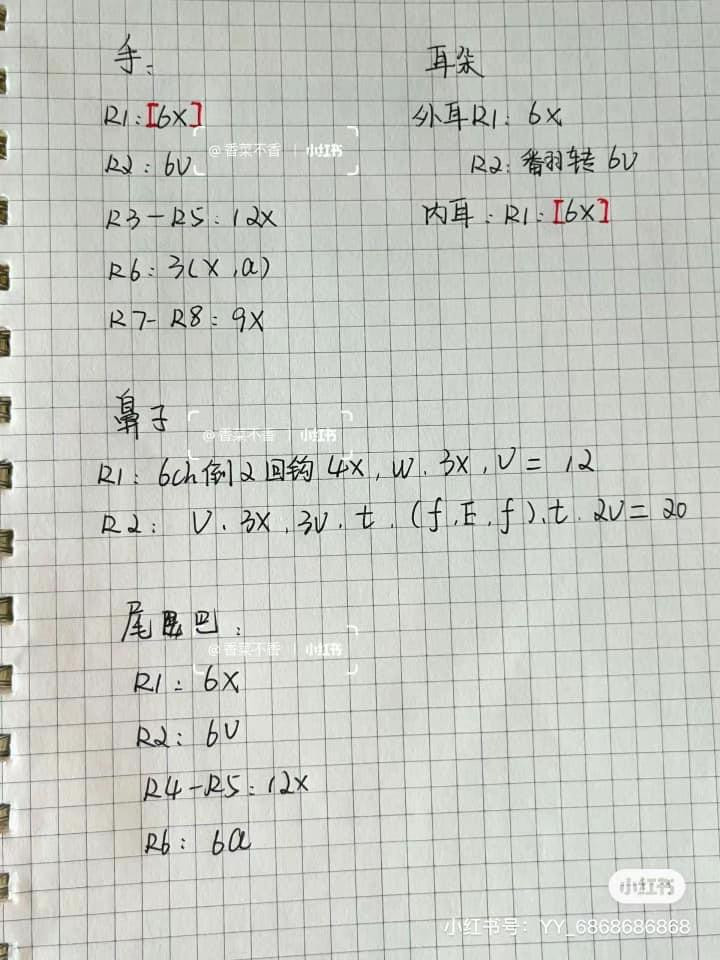 手:
R1:[6X]
R2:6V
R3-R5:12X
R6:3(X,a)
R7-R8:9X
耳朵
外耳R1:6X
R2:翻转6V
内耳:R1:[6X]
@香菜不香 | 小红书
鼻子
@香菜不香 | 小红书
R1:6ch倒2回钩4X,W.3X,V=12
R2:V.3X.3V.t.(f.E.f).t.2V=20
尾巴:
@香菜不香 | 小红书
R1:6X
R2:6V
R4-R5:12X
R6:6a
小红书
小红书号:YY_6868686868